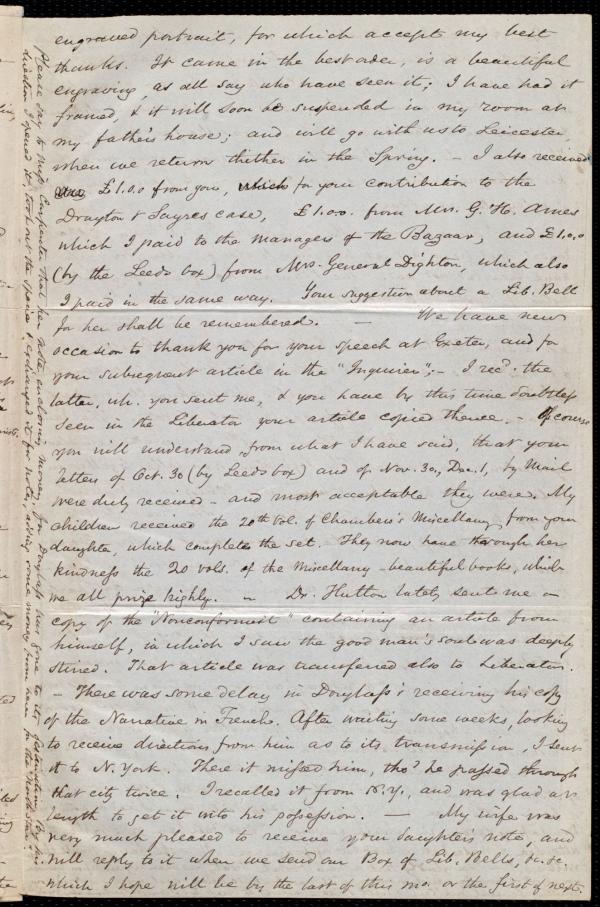 engraved portrait, for which accept my best
thanks. It came in the best order, is a beautiful
engraving, as all say who have seen it; I have had it
framed, & it will soon be suspended in my room at
my father's house; and will go with us to Leicester
when we return thither in the Spring. - I also received
£1.0.0 from you, which for your contribution to the
Drayton & Sayres case, £1.0.0. from Mrs. G. H. Ames
which I paid to the managers of the Bazaar, and £1.0.0
(by the Leeds box) from Mrs. General Dighton, which also
I paid in the same way. Your suggestion about a Lib. Bell
for her shall be remembered. — We have new
occasion to thank you for your speech at Exeter, and for
your subsequent article in the "Inquirer"; - I recd. the
latter, wh. you sent me, & you have by this time doubtless
seen in the Liberator your article copied thence. - Of course
you will understand, from what I have said, that your
letters of Oct. 30 (by Leeds box) and of Nov. 30, Dec. 1, by Mail
were duly received - and most acceptable they were. My
children received the 20th Vol. of Chambers's Miscellany from your
daughter, which completes the set. They now have through her
kindness the 20 vols. of the Miscellany - beautiful books, which
we all prize highly. - Dr. Hutton lately sent me a
copy of the "Nonconformist" containing an article from
himself, in which I saw the good man's soul was deeply
stirred. That article was transferred also to Liberator.
- There was some delay in Douglass's receiving his copy
of the Narrative in French. After waiting some weeks, looking
to receive directions from him as to its transmission, I sent
it to N. York. There it missed him, tho' he passed through
that city twice. I recalled it from N.Y., and was glad at
length to get it into his possession. — My wife was
very much pleased to receive your daughter's note, and
will reply to it when we send our Box of Lib. Bells, &c. &c.
which I hope will be by the last of this mo. or the first of next.
Please say to Miss Carpenter that her note enclosing money for Douglass has gone to its destination. By his
direction I opened it, took out the specie & exchanged it for notes, adding some money from here for the "North Star."